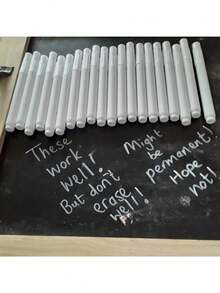 These
work
well!
But don't
erase
well!
Might
be
permanent!
Hope
not!